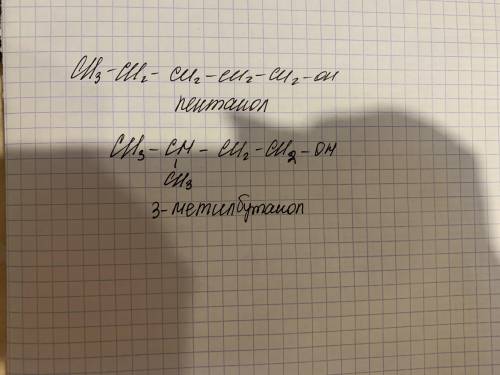 CH3-CH2-CH2-CH2-CH2-OH
пентанол
CH3-CH-CH2-CH2-OH
CH3
3-метилбутанол